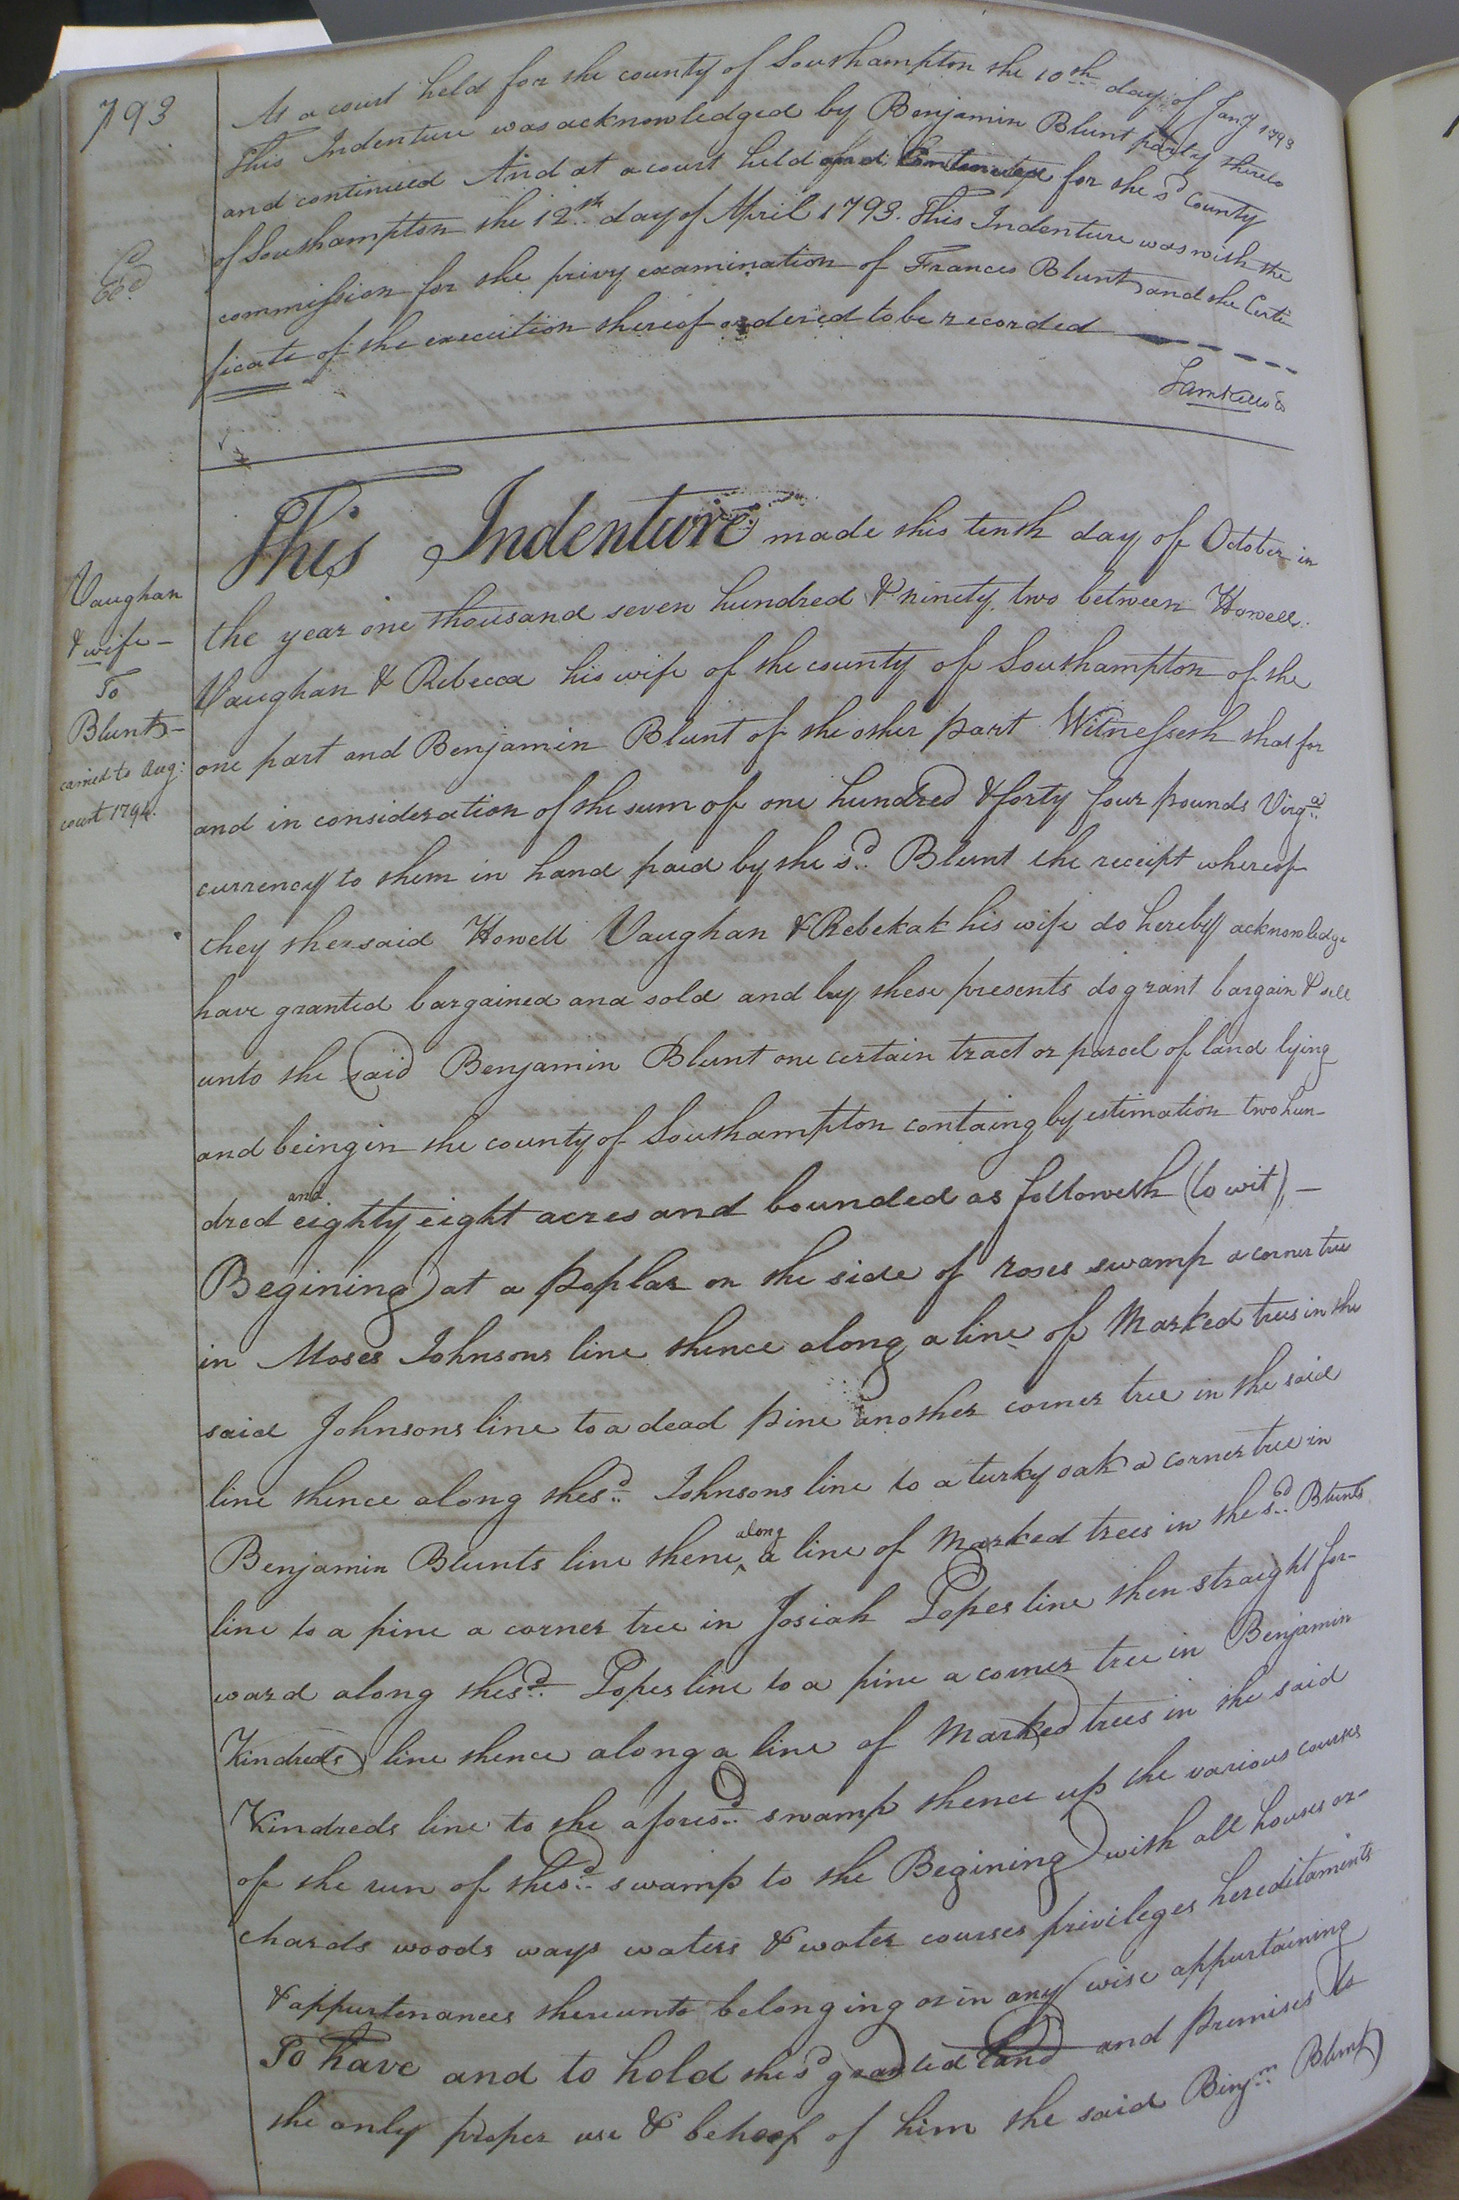 793
At a court held for the county of Southampton the 10th day of Jany 1793
This Indenture was acknowledged by Benjamin Blunt party thereto
and continued And at a court held for the sd County
of Southampton the 12th day of April 1793. This Indenture was with the
commission for the privy examination of Frances Blunt and the Certi
ficate of the execution thereof ordered to be recorded
Exd
This Indenture made this tenth day of October in
the year one thousand seven hundred & ninety two between Howell
Vaughan & Rebecca his wife of the county of Southampton of the
one part and Benjamin Blunt of the other part Witnesseth that for
and in consideration of the sum of one hundred & forty four pounds Virga
currency to them in hand paid by the sd Blunt the receipt whereof
they the said Howell Vaughan & Rebekak his wife do hereby acknowledge
have granted bargained and sold and by these presents do grant bargain & sell
unto the said Benjamin Blunt one certain tract or parcel of land lying
and being in the county of Southampton containg by estimation two hun-
dred and eighty eight acres and bounded as followeth (to wit) –
Begining at a poplar on the side of roses swamp a corner tree
in Moses Johnsons line thence along a line of Marked trees in the
said Johnsons line to a dead pine another corner tree in the said
line thence along the sd Johnsons line to a turky oak a corner tree in
Benjamin Blunts line thene along a line of Marked trees in the sd Blunts
line to a pine a corner tree in Josiah Popes line then straight for-
ward along the sd Popes line to a pine a corner tree in Benjamin
Kindreds line thence along a line of Marked trees in the said
Kindreds line to the aforesd swamp thence up the various courses
of the run of the sd swamp to the Begining with all houses or-
chards woods ways waters & water courses privileges hereditaments
& appurtenances thereunto belonging or in any wise appurtaining
To have and to hold the sd granted land and premises to
the only proper use & behoof of him the said Benjn Blunt
Vaughan
& wife –
To
Blunt –
carried to Aug:
court 1794.